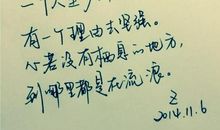 一个人至少
有一个理由去坚强。
心若没有栖息的地方，
到哪里都是在流浪。
Z
2014.11.6